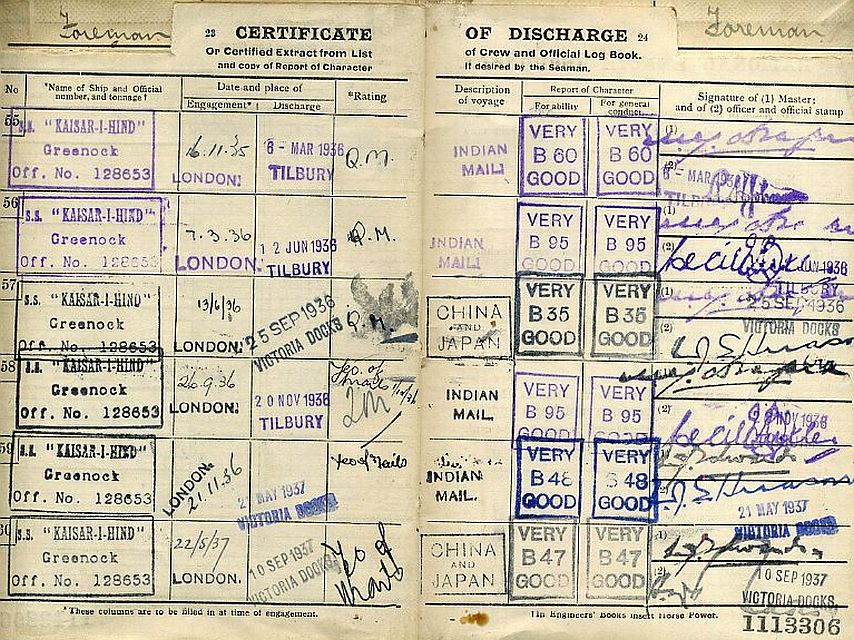 Foreman
Foreman
23 CERTIFICATE OF DISCHARGE 24
Or Certified Extract from List of Crew and Official Log Book.
and copy of Report of Character If desired by the Seaman.
No
*Name of Ship and Official number, and tonnage†
Date and place of
Engagement*
Discharge
*Rating
Description of voyage
Report of Character
For ability
For general conduct
Signature of (1) Master; and of (2) officer and official stamp
55
S.S. "KAISAR-I-HIND"
Greenock
Off. No. 128653
16.11.35
LONDON.
6 - MAR 1936
TILBURY
Q.M.
INDIAN
MAIL
VERY
B 60
GOOD
VERY
B 60
GOOD
(1)
(2)
6 - MAR 193
TILBU
56
S.S. "KAISAR-I-HIND"
Greenock
Off. No. 128653
7.3.36
LONDON.
12 JUN 1936
TILBURY
Q.M.
INDIAN
MAIL
VERY
B 95
GOOD
VERY
B 95
GOOD
(1)
(2)
JUN 1936
TILBURY
57
S.S. "KAISAR-I-HIND"
Greenock
Off. No. 128653
13/6/36
LONDON.
25 SEP 1936
VICTORIA DOCKS
Q.M.
CHINA
AND
JAPAN
VERY
B 35
GOOD
VERY
B 35
GOOD
(1)
25 SEP 1936
VICTORIA DOCKS
(2)
58
S.S. "KAISAR-I-HIND"
Greenock
Off. No. 128653
26.9.36
LONDON.
20 NOV 1936
TILBURY
Yeo. of
Mails
INDIAN
MAIL.
VERY
B 95
GOOD
VERY
B 95
GOOD
(2)
NOV 1936
59
S.S. "KAISAR-I-HIND"
Greenock
Off. No. 128653
LONDON.
21.11.36
21 MAY 1937
VICTORIA DOCKS
Yeo of Mails
INDIAN
MAIL.
VERY
B 48
GOOD
VERY
B 48
GOOD
21 MAY 1937
VICTORIA DOCKS
60
S.S. "KAISAR-I-HIND"
Greenock
Off. No. 128653
22/5/37
LONDON.
10 SEP 1937
VICTORIA DOCKS
Yeo of
Mails
CHINA
AND
JAPAN
VERY
B 47
GOOD
VERY
B 47
GOOD
(1)
(2)
10 SEP 1937
VICTORIA DOCKS,
*These columns are to be filled in at time of engagement.
†In Engineers' Books insert Horse Power.
1113306